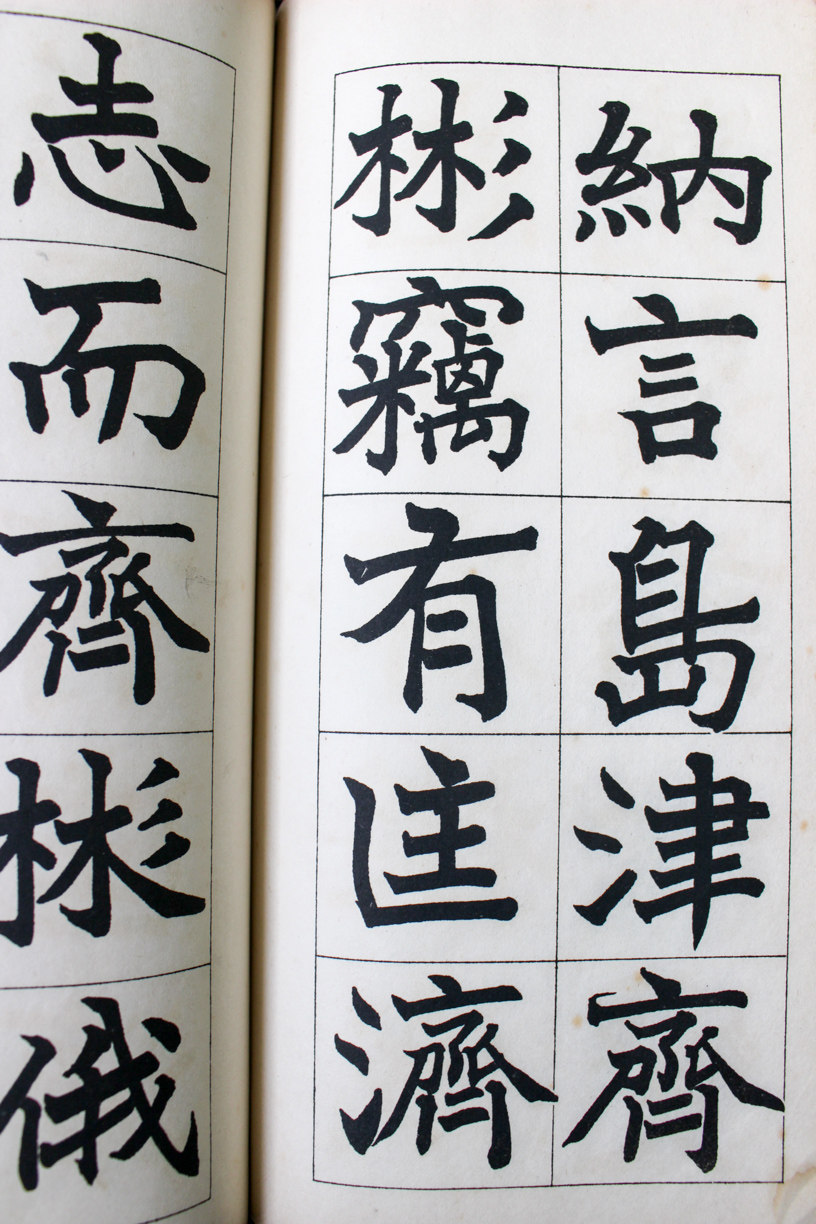 納言島津齊
彬竊有匡濟
志而齊彬俄